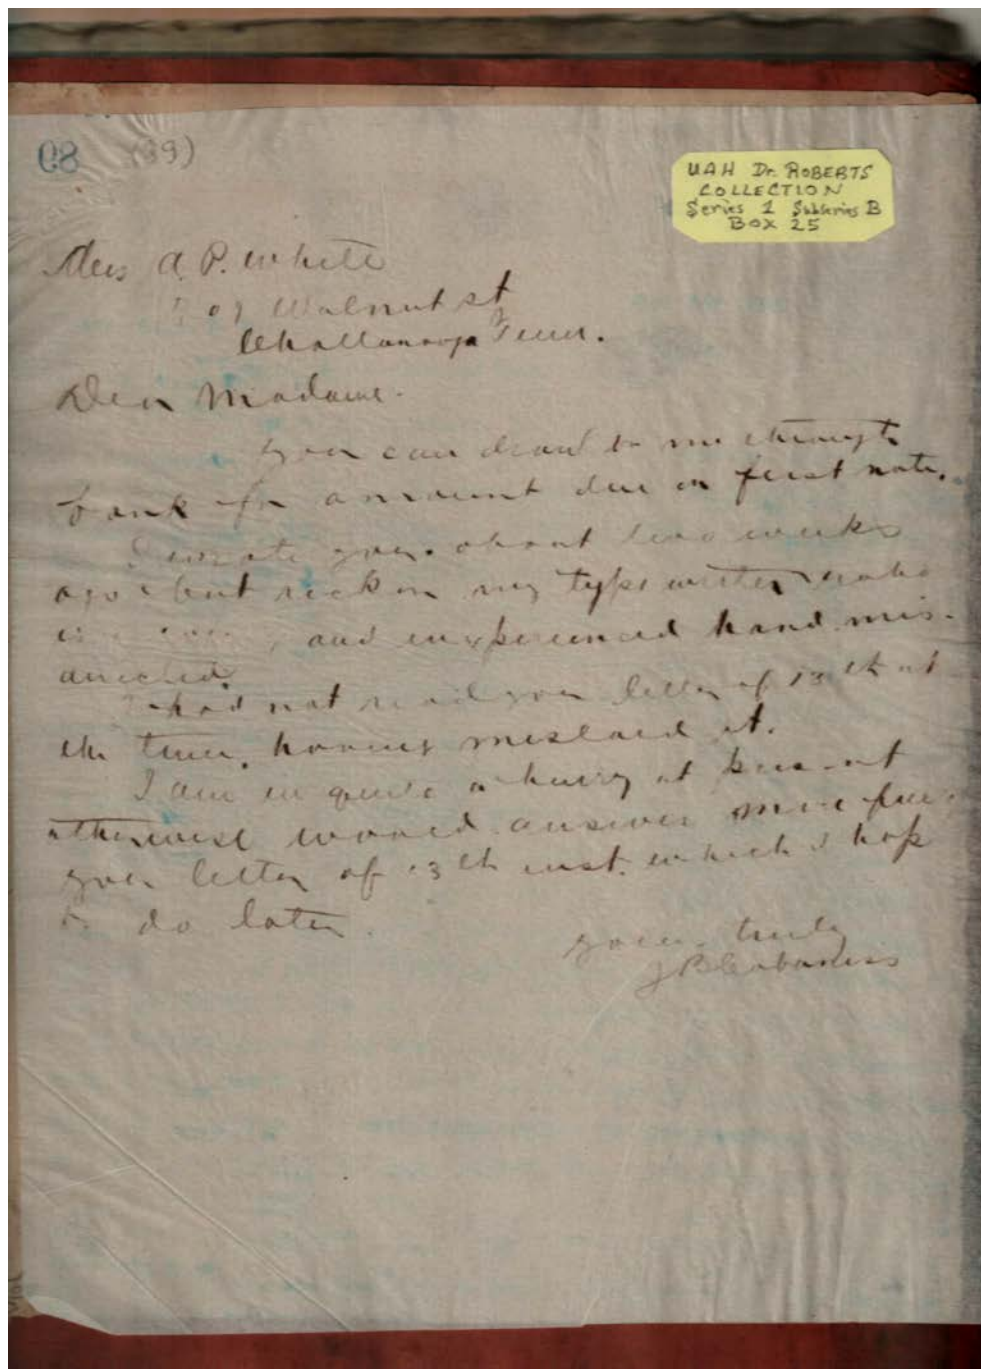 08 (39)
UAH Dr. ROBERTS
COLLECTION
Series 1 Subseries B
Box 25
Mrs A. P. White
Walnut st
Chattanooga Tenn.
Dear Madame.
You can draw on me through
bank for amount due on first note.
I wrote you about two weeks
ago but reckon my type writer who
is and inexperienced hand mis-
directed.
I had not read your letter of 13th at
the time, having mislaid it.
I am in quite a hurry at present
otherwise would answer more fully
your letter of 13th inst. which I hope
to do later.
yours truly
J B Cabaniss